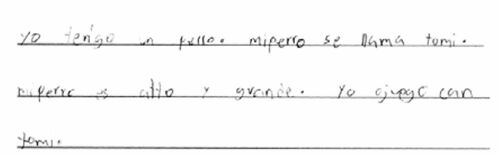 yo tengo un perro. miperro se llama tomi.
miperro es alto y grande. Yo ojuego can
tomi.